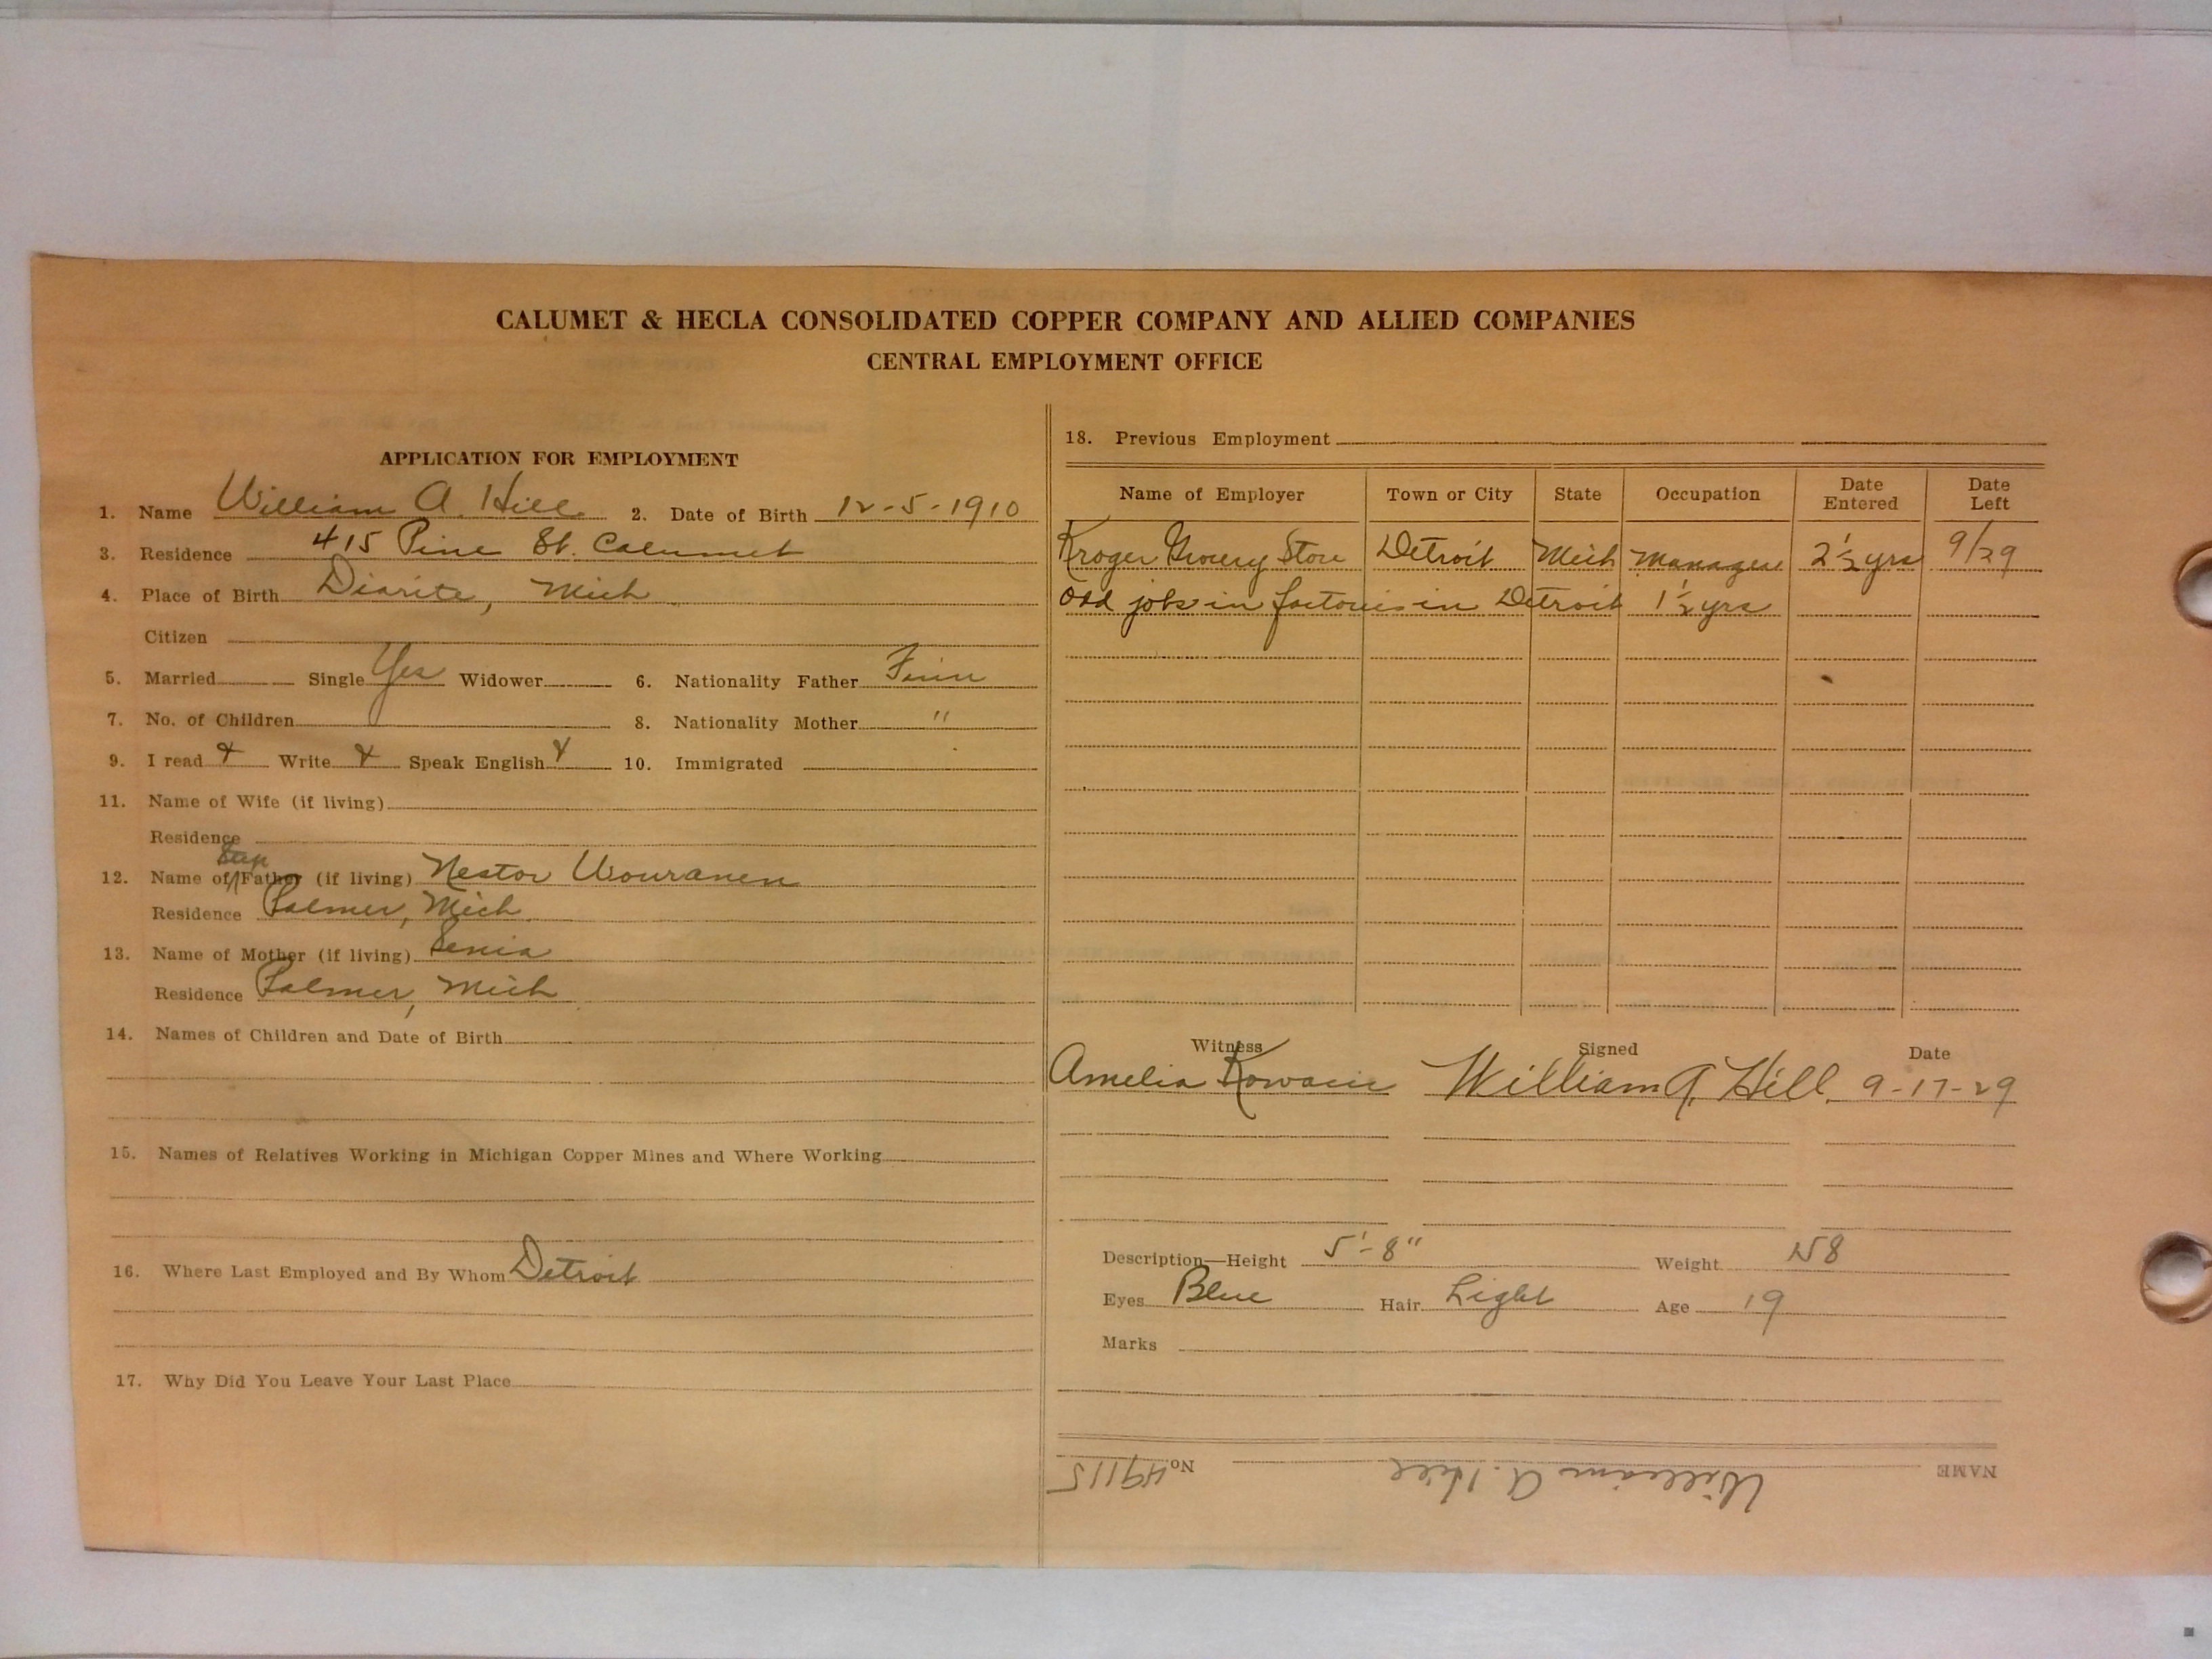 CALUMET & HECLA CONSOLIDATED COPPER COMPANY AND ALLIED COMPANIES
CENTRAL EMPLOYMENT OFFICE
APPLICATION FOR EMPLOYMENT
1. Name William A. Hill 2. Date of Birth 12-5-1910
3. Residence 415 Pine St. Calumet
4. Place of Birth Diorite, Mich
Citizen
5. Married Single Yes Widower 6. Nationality Father Finn
7. No. of Children 8. Nationality Mother "
9. I read Write Speak English 10. Immigrated
11. Name of Wife (if living)
Residence
Step
12. Name of Father (if living) Nestor
Residence Palmer, Mich
13. Name of Mother (if living)
Residence Palmer, Mich
14. Names of Children and Date of Birth
15. Names of Relatives Working in Michigan Copper Mines and Where Working
16. Where Last Employed and By Whom Detroit
17. Why Did You Leave Your Last Place
18. Previous Employment
Name of Employer Town or City State Occupation Date Entered Date Left
Kroger Grocery Store Detroit Mich Manager 2½ yrs 9/29
Odd jobs in factories in Detroit 1½ yrs
Witness Signed Date
Amelia William A. Hill 9-17-29
Description—Height 5'-8" Weight 158
Eyes Blue Hair Light Age 19
Marks
NAME William A. Hill No. 49115